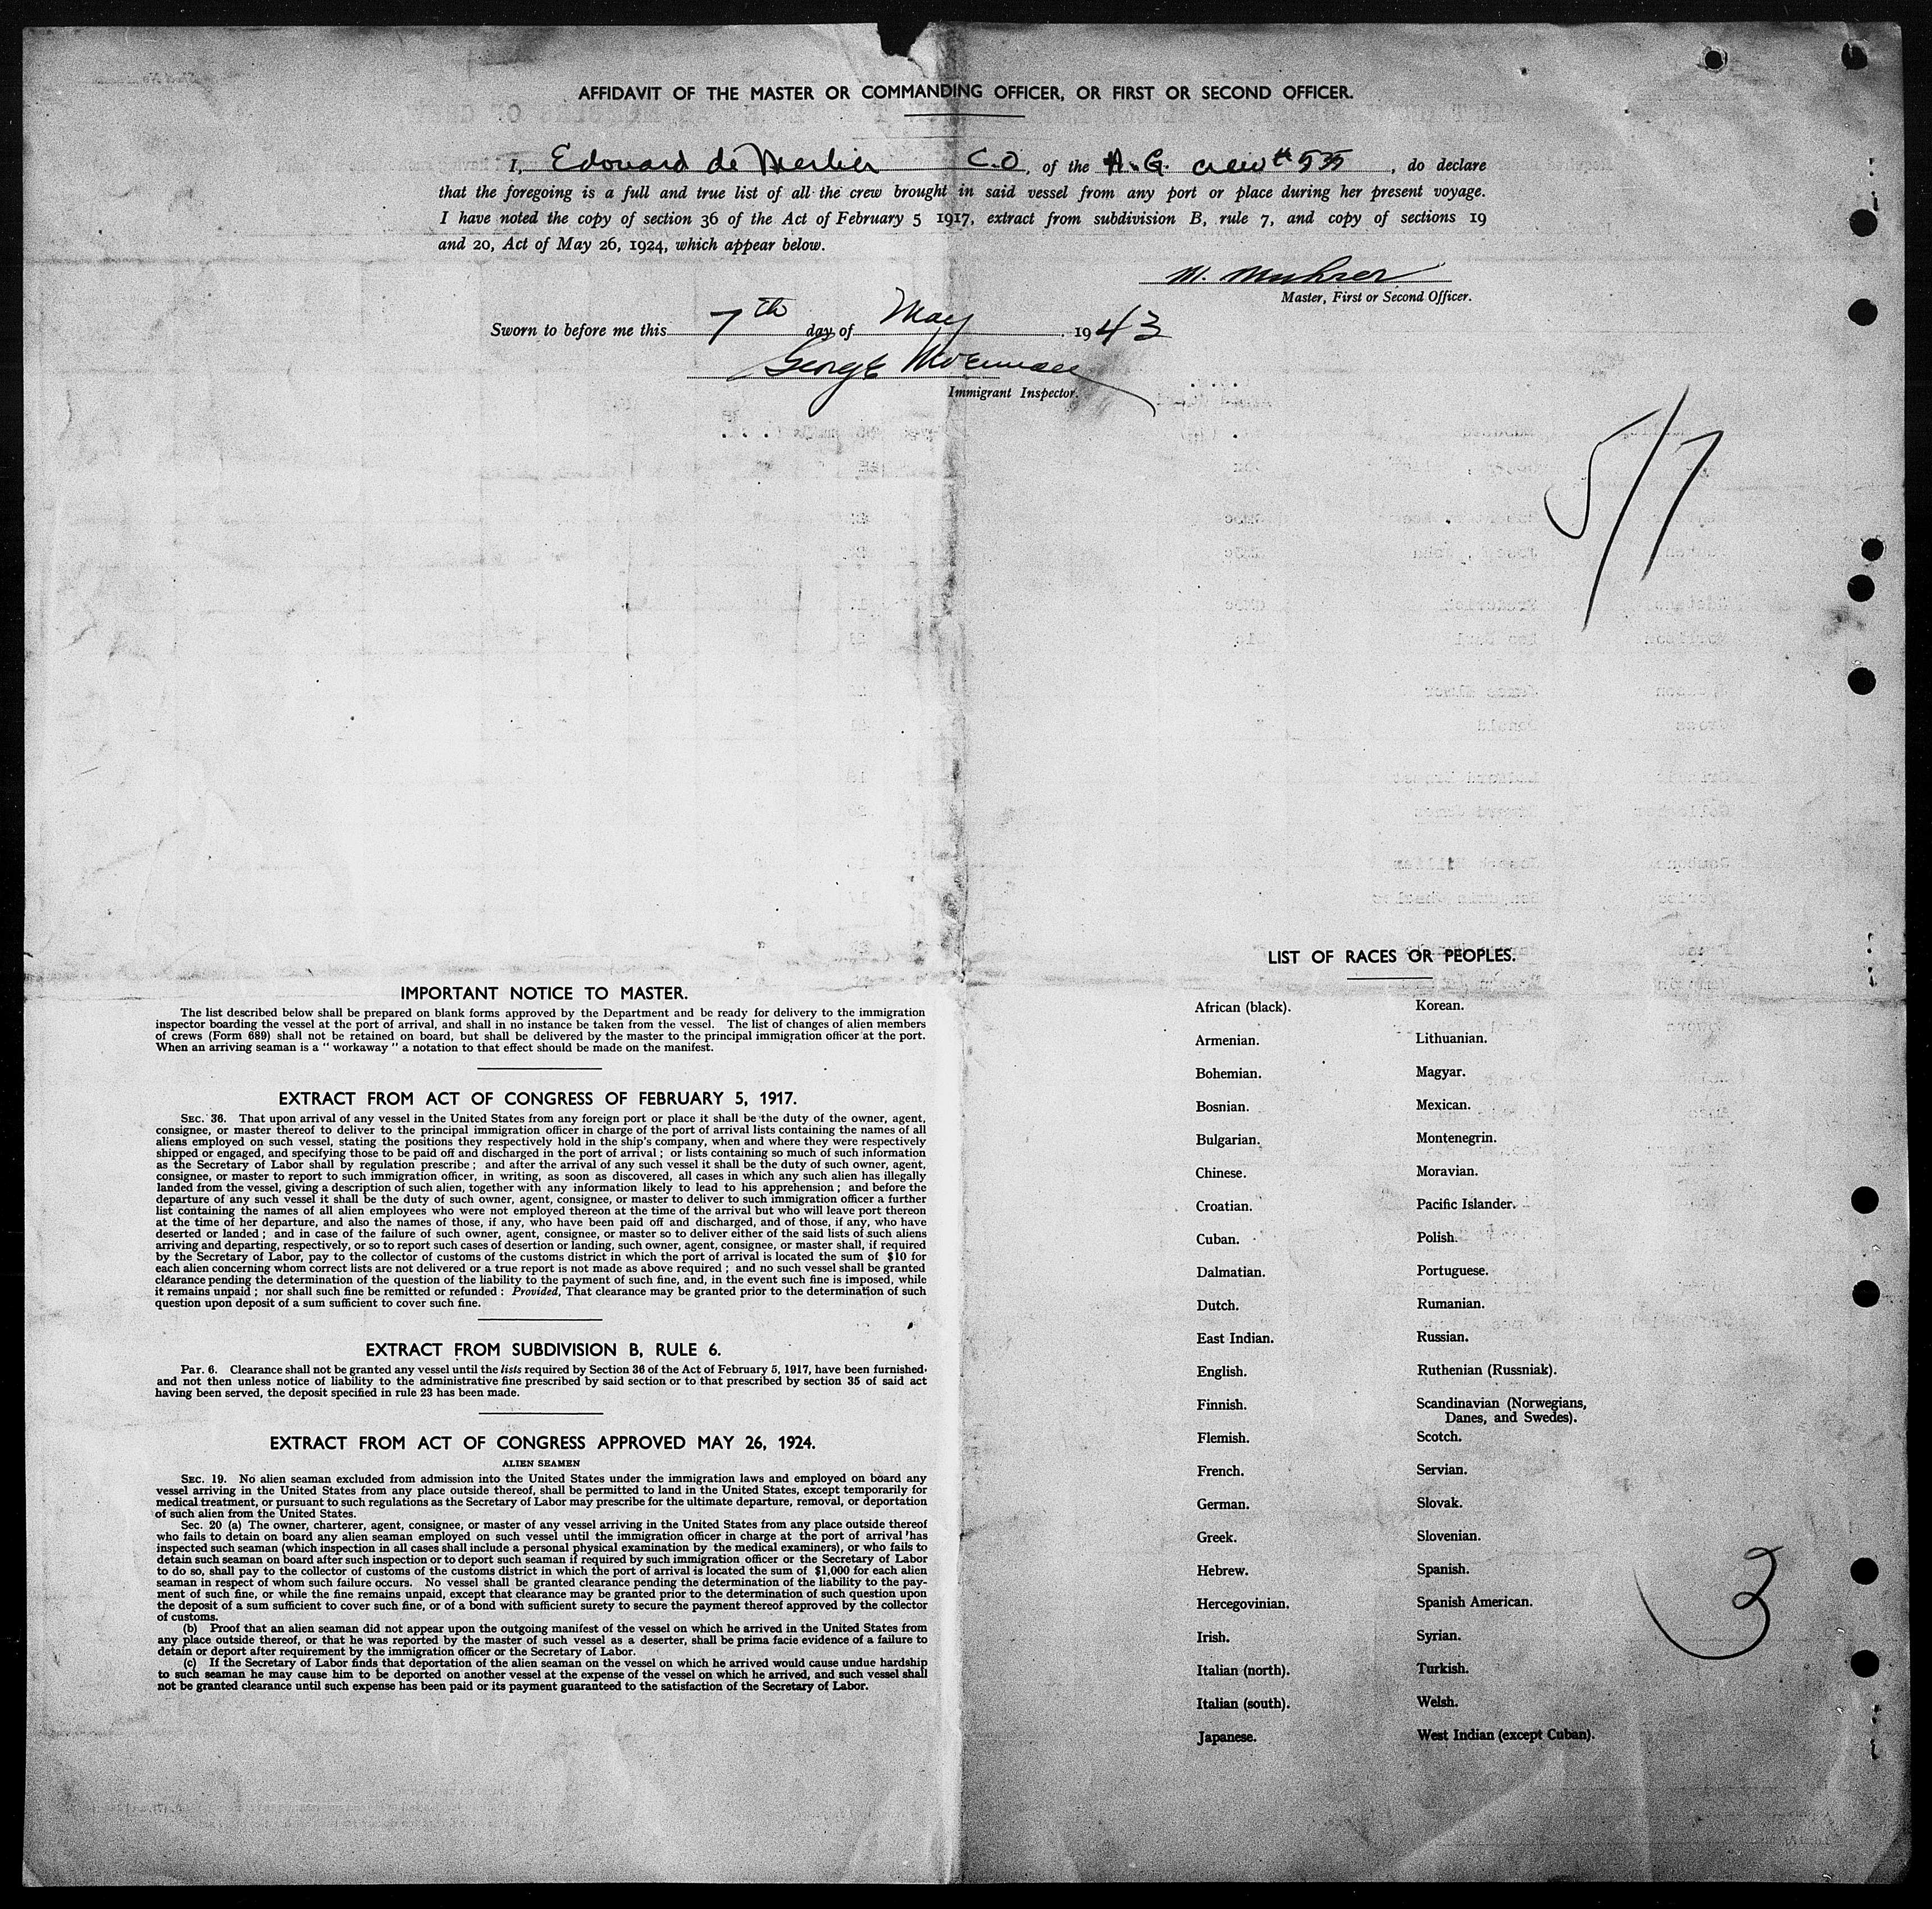 AFFIDAVIT OF THE MASTER OR COMMANDING OFFICER, OR FIRST OR SECOND OFFICER.
I, Edouard de C.O, of the A.G. crew # 535, do declare
that the foregoing is a full and true list of all the crew brought in said vessel from any port or place during her present voyage.
I have noted the copy of section 36 of the Act of February 5 1917, extract from subdivision B, rule 7, and copy of sections 19
and 20, Act of May 26, 1924, which appear below.
M.
Master, First or Second Officer.
Sworn to before me this 7th day of May 1943
George
Immigrant Inspector.
5/7
IMPORTANT NOTICE TO MASTER.
The list described below shall be prepared on blank forms approved by the Department and be ready for delivery to the immigration
inspector boarding the vessel at the port of arrival, and shall in no instance be taken from the vessel. The list of changes of alien members
of crews (Form 689) shall not be retained on board, but shall be delivered by the master to the principal immigration officer at the port.
When an arriving seaman is a " workaway " a notation to that effect should be made on the manifest.
EXTRACT FROM ACT OF CONGRESS OF FEBRUARY 5, 1917.
SEC. 36. That upon arrival of any vessel in the United States from any foreign port or place it shall be the duty of the owner, agent,
consignee, or master thereof to deliver to the principal immigration officer in charge of the port of arrival lists containing the names of all
aliens employed on such vessel, stating the positions they respectively hold in the ship's company, when and where they were respectively
shipped or engaged, and specifying those to be paid off and discharged in the port of arrival ; or lists containing so much of such information
as the Secretary of Labor shall by regulation prescribe ; and after the arrival of any such vessel it shall be the duty of such owner, agent,
consignee, or master to report to such immigration officer, in writing, as soon as discovered, all cases in which any such alien has illegally
landed from the vessel, giving a description of such alien, together with any information likely to lead to his apprehension ; and before the
departure of any such vessel it shall be the duty of such owner, agent, consignee, or master to deliver to such immigration officer a further
list containing the names of all alien employees who were not employed thereon at the time of the arrival but who will leave port thereon
at the time of her departure, and also the names of those, if any, who have been paid off and discharged, and of those, if any, who have
deserted or landed ; and in case of the failure of such owner, agent, consignee, or master so to deliver either of the said lists of such aliens
arriving and departing, respectively, or so to report such cases of desertion or landing, such owner, agent, consignee, or master shall, if required
by the Secretary of Labor, pay to the collector of customs of the customs district in which the port of arrval is located the sum of $10 for
each alien concerning whom correct lists are not delivered or a true report is not made as above required ; and no such vessel shall be granted
clearance pending the determination of the question of the liability to the payment of such fine, and, in the event such fine is imposed, while
it remains unpaid ; nor shall such fine be remitted or refunded : Provided, That clearance may be granted prior to the determination of such
question upon deposit of a sum sufficient to cover such fine.
EXTRACT FROM SUBDIVISION B, RULE 6.
Par. 6. Clearance shall not be granted any vessel until the lists required by Section 36 of the Act of February 5, 1917, have been furnished,
and not then unless notice of liability to the administrative fine prescribed by said section or to that prescribed by section 35 of said act
having been served, the deposit specified in rule 23 has been made.
EXTRACT FROM ACT OF CONGRESS APPROVED MAY 26, 1924.
ALIEN SEAMEN
SEC. 19. No alien seaman excluded from admission into the United States under the immigration laws and employed on board any
vessel arriving in the United States from any place outside thereof, shall be permitted to land in the United States, except temporarily for
medical treatment, or pursuant to such regulations as the Secretary of Labor may prescribe for the ultimate departure, removal, or deportation
of such alien from the United States.
Sec. 20 (a) The owner, charterer, agent, consignee, or master of any vessel arriving in the United States from any place outside thereof
who fails to detain on board any alien seaman employed on such vessel until the immigration officer in charge at the port of arrival has
inspected such seaman (which inspection in all cases shall include a personal physical examination by the medical examiners), or who fails to
detain such seaman on board after such inspection or to deport such seaman if required by such immigration officer or the Secretary of Labor
to do so, shall pay to the collector of customs of the customs district in which the port of arrival is located the sum of $1,000 for each alien
seaman in respect of whom such failure occurs. No vessel shall be granted clearance pending the determination of the liability to the pay-
ment of such fine, or while the fine remains unpaid, except that clearance may be granted prior to the determination of such question upon
the deposit of a sum sufficient to cover such fine, or of a bond with sufficient surety to secure the payment thereof approved by the collector
of customs.
(b) Proof that an alien seaman did not appear upon the outgoing manifest of the vessel on which he arrived in the United States from
any place outside thereof, or that he was reported by the master of such vessel as a deserter, shall be prima facie evidence of a failure to
detain or deport after requirement by the immigration officer or the Secretary of Labor.
(c) If the Secretary of Labor finds that deportation of the alien seaman on the vessel on which he arrived would cause undue hardship
to such seaman he may cause him to be deported on another vessel at the expense of the vessel on which he arrived, and such vessel shall
not be granted clearance until such expense has been paid or its payment guaranteed to the satisfaction of the Secretary of Labor.
LIST OF RACES OR PEOPLES.
African (black). Korean.
Armenian. Lithuanian.
Bohemian. Magyar.
Bosnian. Mexican.
Bulgarian. Montenegrin.
Chinese. Moravian.
Croatian. Pacific Islander.
Cuban. Polish.
Dalmatian. Portuguese.
Dutch. Rumanian.
East Indian. Russian.
English. Ruthenian (Russniak).
Finnish. Scandinavian (Norwegians,
Danes, and Swedes).
Flemish. Scotch.
French. Servian.
German. Slovak.
Greek. Slovenian.
Hebrew. Spanish.
Hercegovinian. Spanish American.
Irish. Syrian.
Italian (north). Turkish.
Italian (south). Welsh.
Japanese. West Indian (except Cuban).
3